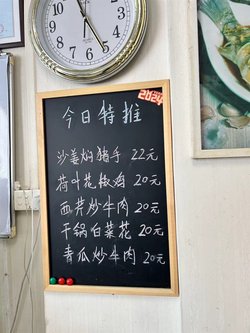 2024
今日特推
沙姜焖猪手 22元
荷叶花椒鸡 20元
西芹炒牛肉 20元
干锅白菜花 20元
青瓜炒牛肉 20元